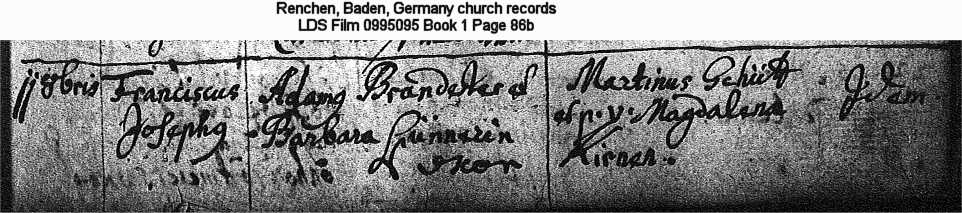 Renchen, Baden, Germany church records
LDS Film 0995095 Book 1 Page 86b
11 8bris Franciscus Adamg Brandsteter et Martinus Schütt Idem
Josephg Barbara et p. v. Magdalena
uxor Kirner.